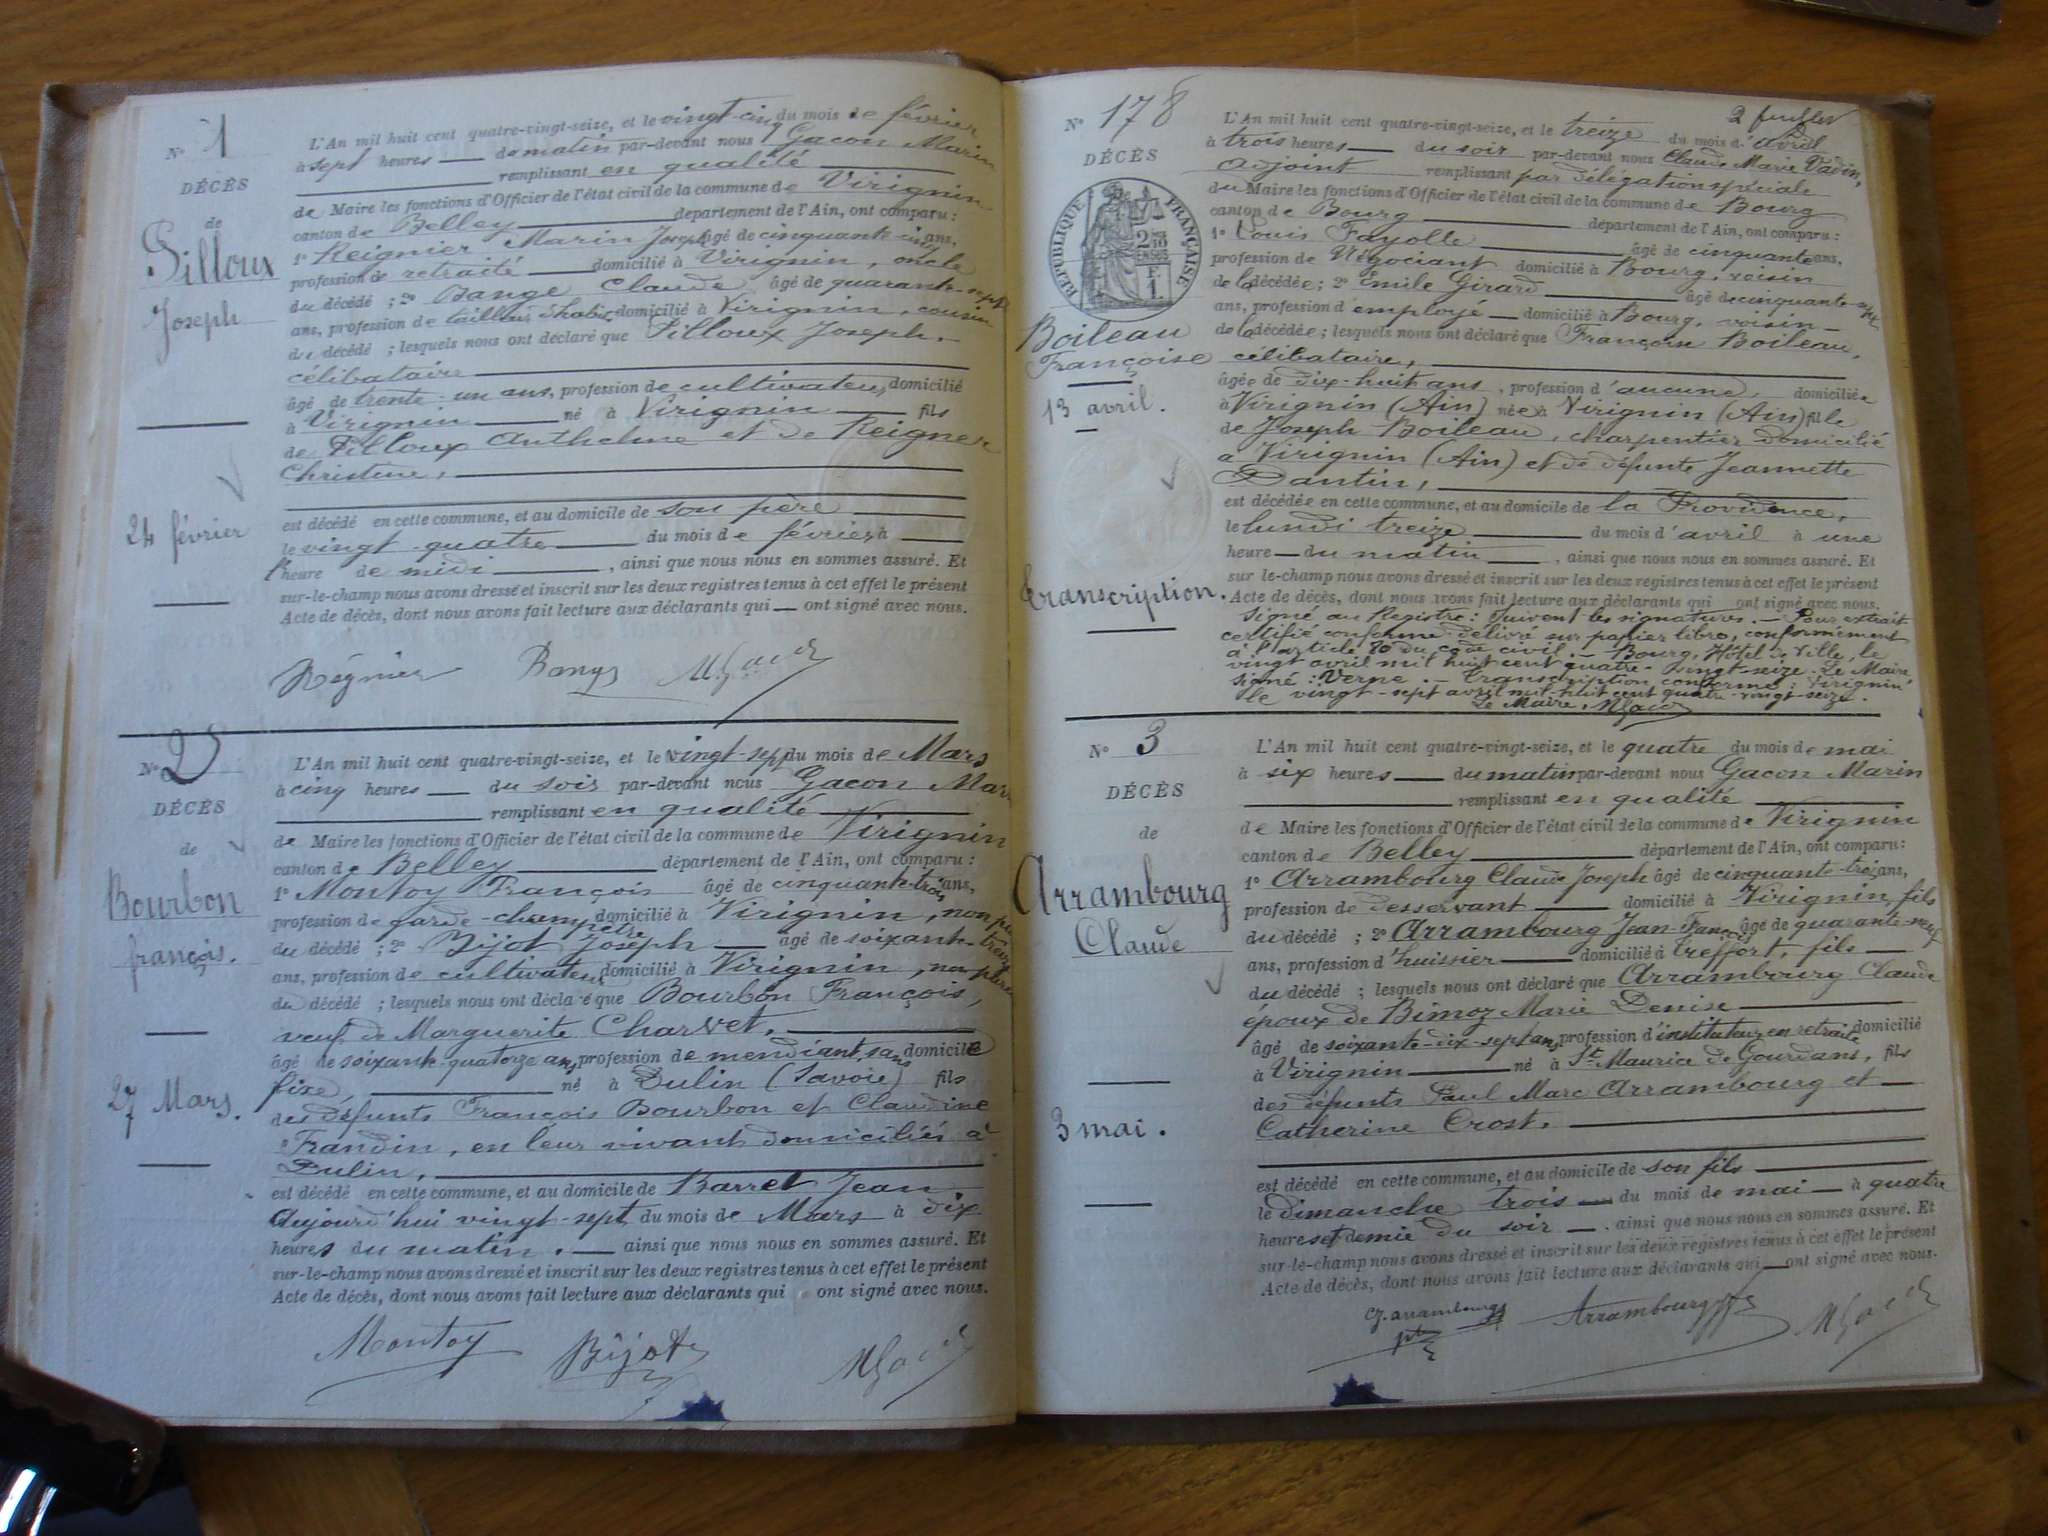 N° 1
DÉCÈS
de
Pilloux
Joseph
24 février
L'An mil huit cent quatre-vingt-seize, et le vingt-cinq du mois de février
à sept heures du matin par-devant nous Gacon Marin
remplissant en qualité
de Maire les fonctions d'Officier de l'état civil de la commune de Virignin
canton de Belley département de l'Ain, ont comparu :
1° Reignier Marin Joseph âgé de cinquante-cinq ans,
profession de retraité domicilié à Virignin, oncle
du décédé ; 2° Bange Claude âgé de quarante-sept
ans, profession de tailleur d'habits domicilié à Virignin, cousin
du décédé ; lesquels nous ont déclaré que Pilloux Joseph,
célibataire
âgé de trente-un ans, profession de cultivateur, domicilié
à Virignin né à Virignin fils
de Pilloux Anthelme et de Reigner
Christine,
est décédé en cette commune, et au domicile de son père
le vingt-quatre du mois de février, à
l'heure de midi, ainsi que nous nous en sommes assuré. Et
sur-le-champ nous avons dressé et inscrit sur les deux registres tenus à cet effet le présent
Acte de décès, dont nous avons fait lecture aux déclarants qui ont signé avec nous.
Régnier Bange MGacon
N° 2
DÉCÈS
de
Bourbon
françois.
27 Mars.
L'An mil huit cent quatre-vingt-seize, et le vingt-sept du mois de Mars
à cinq heures du soir par-devant nous Gacon Marin
remplissant en qualité
de Maire les fonctions d'Officier de l'état civil de la commune de Virignin
canton de Belley département de l'Ain, ont comparu :
1° Montoy François âgé de cinquante-trois ans,
profession de garde-champêtre domicilié à Virignin, non pt
du décédé ; 2° Bijot Joseph âgé de soixante-treize
ans, profession de cultivateur domicilié à Virignin, non parent
du décédé ; lesquels nous ont déclaré que Bourbon François,
veuf de Marguerite Charvet,
âgé de soixante-quatorze ans, profession de mendiant, sans domicile
fixe, né à Dulin (Savoie) fils
des défunts François Bourbon et Claudine
Frandin, en leur vivant domiciliés à
Dulin,
est décédé en cette commune, et au domicile de Barret Jean
aujourd'hui vingt-sept du mois de Mars à dix
heures du matin. ainsi que nous nous en sommes assuré. Et
sur-le-champ nous avons dressé et inscrit sur les deux registres tenus à cet effet le présent
Acte de décès, dont nous avons fait lecture aux déclarants qui ont signé avec nous.
Montoy Bijot MGacon
2 feuillet
N° 178
DÉCÈS
RÉPUBLIQUE FRANÇAISE
Boileau
Françoise
13 avril.
transcription.
L'An mil huit cent quatre-vingt-seize, et le treize du mois d'avril
à trois heures du soir par-devant nous Claude Marie Vadin,
adjoint remplissant par délégation spéciale
du Maire les fonctions d'Officier de l'état civil de la commune de Bourg
canton de Bourg département de l'Ain, ont comparu :
1° Louis Fayolle âgé de cinquante ans,
profession de Négociant domicilié à Bourg, voisin
de la décédée ; 2° Emile Girard âgé de cinquante-sept
ans, profession d'employé domicilié à Bourg, voisin
de la décédée ; lesquels nous ont déclaré que Françoise Boileau,
célibataire,
âgée de dix-huit ans, profession d'aucune, domiciliée
à Virignin (Ain) née à Virignin (Ain) fille
de Joseph Boileau, charpentier domicilié
à Virignin (Ain) et de défunte Jeannette
Dantin,
est décédée en cette commune, et au domicile de la Providence,
le lundi treize du mois d'avril à une
heure du matin, ainsi que nous nous en sommes assuré. Et
sur-le-champ nous avons dressé et inscrit sur les deux registres tenus à cet effet le présent
Acte de décès, dont nous avons fait lecture aux déclarants qui ont signé avec nous.
Signé au Registre : Suivent les signatures. - Pour extrait
certifié conforme délivré sur papier libre, conformément
à l'article 80 du code civil. - Bourg, Hôtel de Ville, le
vingt avril mil huit cent quatre-vingt-seize. Le Maire,
signé : Verne. - Transcription conforme : Virignin
le vingt-sept avril mil-huit cent quatre-vingt-seize.
Le Maire, MGacon
N° 3
DÉCÈS
de
Arrambourg
Claude
3 mai.
L'An mil huit cent quatre-vingt-seize, et le quatre du mois de mai
à six heures du matin par-devant nous Gacon Marin
remplissant en qualité
de Maire les fonctions d'Officier de l'état civil de la commune de Virignin
canton de Belley département de l'Ain, ont comparu :
1° Arrambourg Claude Joseph âgé de cinquante-trois ans,
profession de desservant domicilié à Virignin, fils
du décédé ; 2° Arrambourg Jean-François âgé de quarante-neuf
ans, profession d'huissier domicilié à Treffort, fils
du décédé ; lesquels nous ont déclaré que Arrambourg Claude
époux de Bimoz Marie Denise
âgé de soixante-dix-sept ans, profession d'instituteur en retraite domicilié
à Virignin né à St Maurice de Gourdans, fils
des défunts Paul Marc Arrambourg et
Catherine Crost.
est décédé en cette commune, et au domicile de son fils
le dimanche trois du mois de mai à quatre
heures et demie du soir. ainsi que nous nous en sommes assuré. Et
sur-le-champ nous avons dressé et inscrit sur les deux registres tenus à cet effet le présent
Acte de décès, dont nous avons fait lecture aux déclarants qui ont signé avec nous.
Cj. arrambourg Arrambourg MGacon